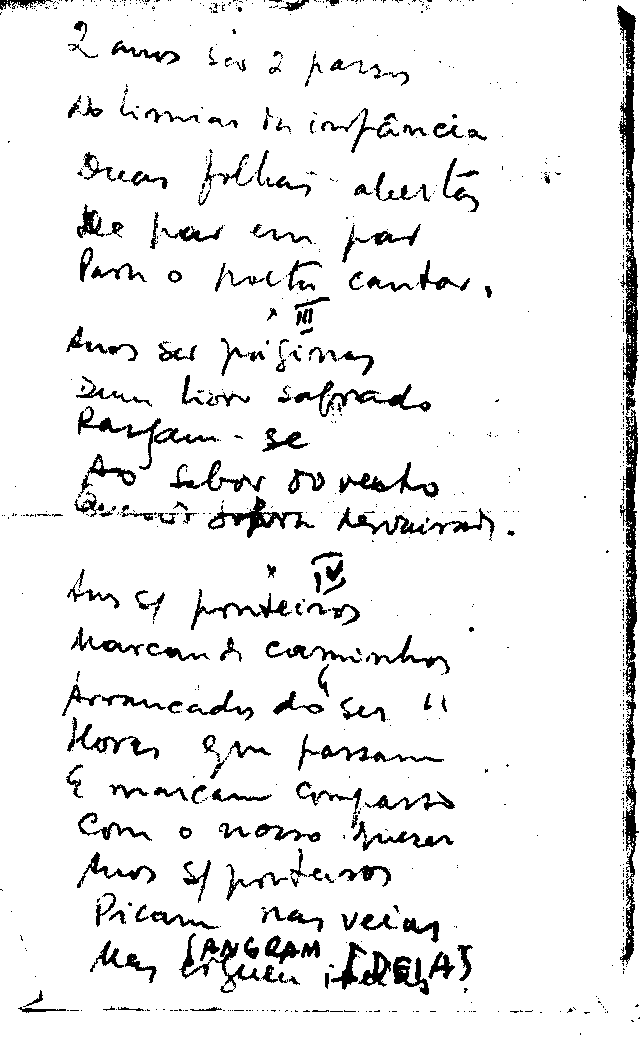 2 anos são 2 passos
No limiar da infância
Duas folhas abertas
De par em par
Para o poeta cantar.
III
Anos ser páginas
Dum livro sagrado
Rasgam-se
Ao sabor do vento
desvairado.
IV
Anos s/ ponteiros
Marcando caminhos
Arrancados do "ser"
Horas que passam
E marcam compasso
Com o nosso querer
Anos s/ ponteiros
Picam nas veias
SANGRAM IDEIAS
Mas erguem ideias